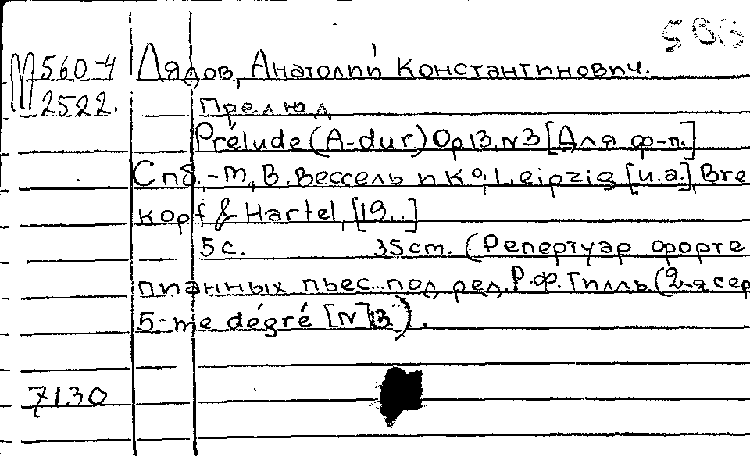 М 560-4 Лядов, Анатолий Константинович.
2522. Прелюд
Prélude (A-dur) Op13, N3 [Для ф-п.]
Спб.-М, В. Бессель и Ко, Leipzig [и.а.], Bre
kopf & Hartel, [19..]
5 с. 35 cm. (Репертуар форте
пианных пьес под ред. Р.Ф. Гилль. (2-я сер
5-me dégré [N]13).
7130